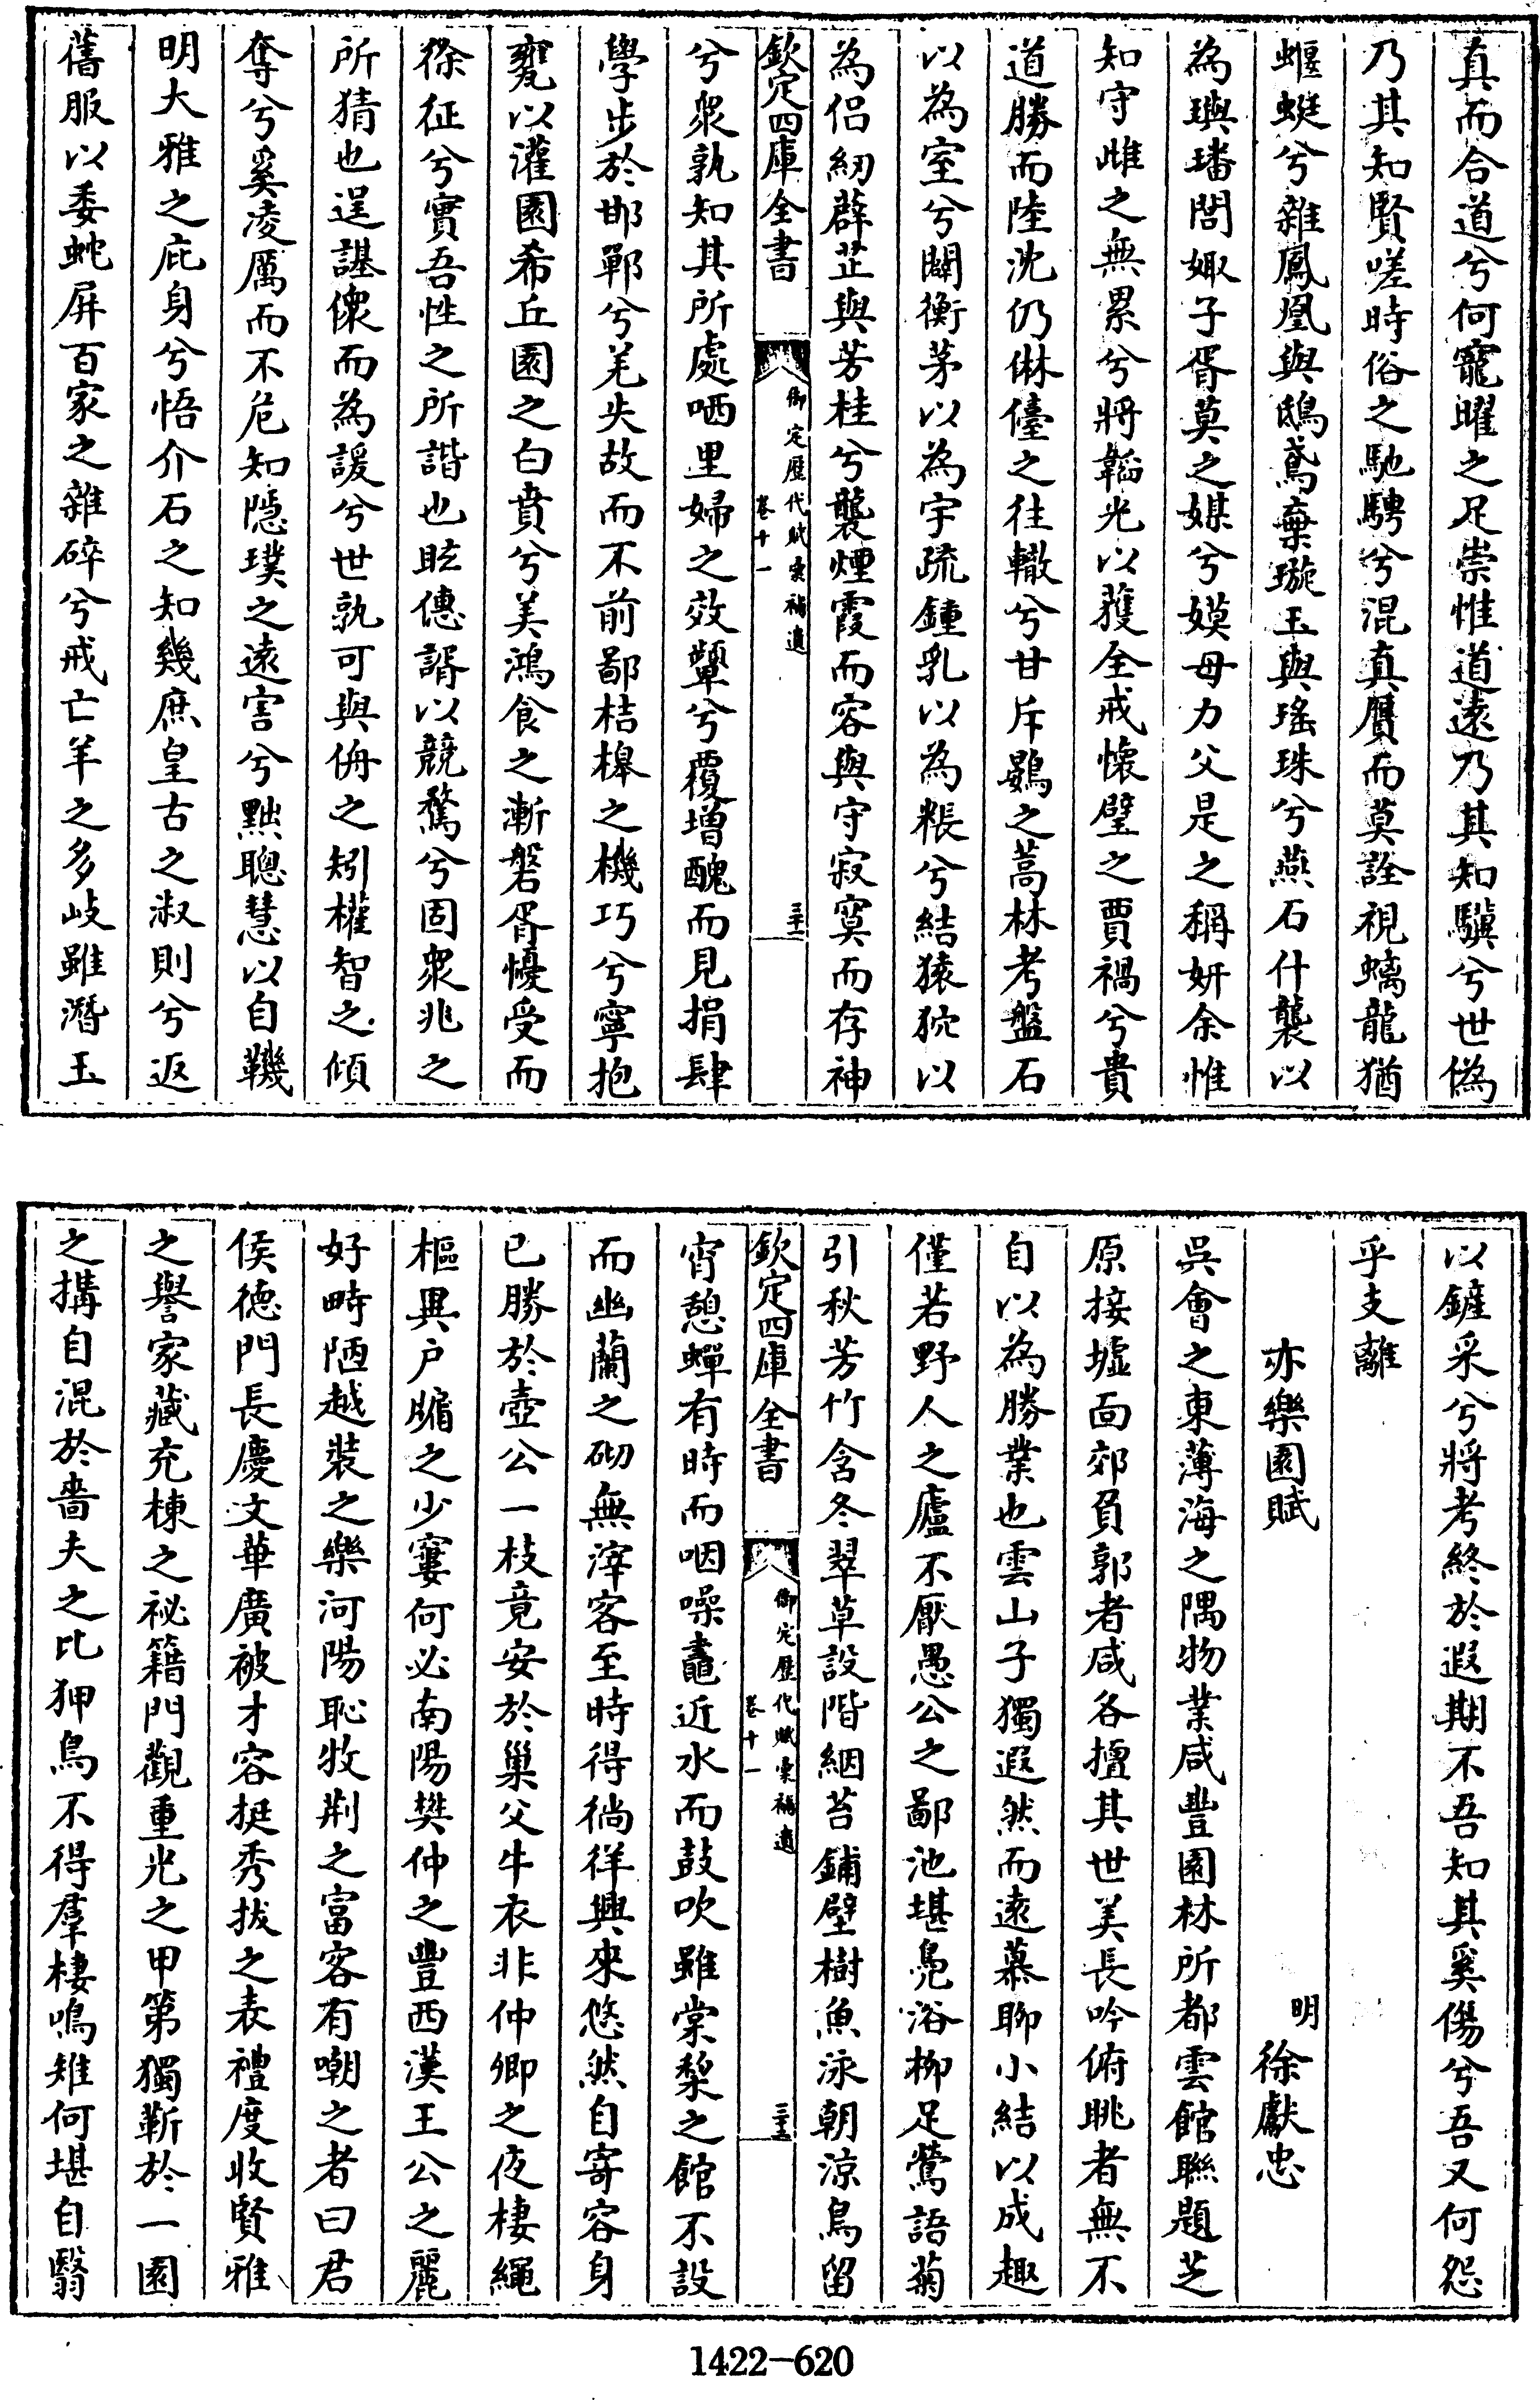 真而合道兮何寵曜之足崇惟道遠乃其知驥兮世偽
乃其知賢嗟時俗之馳騁兮混真贋而莫詮視螭龍猶
蝘蜓兮雜鳳凰與鴟鳶棄璇玉與瑤珠兮燕石什襲以
為璵璠閭娵子胥莫之媒兮嫫母力父是之稱妍余惟
知守雌之無累兮將韜光以獲全戒懷璧之賈禍兮貴
道勝而陸沈仍僽儓之往轍兮甘斥鷃之蒿林考盤石
以為室兮闢衡茅以為宇疏鍾乳以為粻兮結猿狖以
為侶紉辟芷與芳桂兮襲煙霞而容與守寂寞而存神
欽定四庫全書
御定歷代賦彙補遺
卷十一
三十一
兮衆孰知其所處哂里婦之效顰兮覆增醜而見捐肆
學步於邯鄲兮羌失故而不前鄙桔槔之機巧兮寧抱
甕以灌園希丘園之白賁兮美鴻食之漸磐胥懮受而
徐征兮實吾性之所諧也眩僡諝以競騖兮固衆兆之
所猜也逞諶儇而為諼兮世孰可與侜之矧權智之傾
奪兮奚凌厲而不危知隱璞之遠害兮黜聰慧以自鞿
明大雅之庇身兮悟介石之知幾庶皇古之淑則兮返
舊服以委蛇屏百家之雜碎兮戒亡羊之多岐雖潛玉
以鏟采兮將考終於遐期不吾知其奚傷兮吾又何怨
乎支離
亦樂園賦
明
徐獻忠
吳會之東薄海之隅物業咸豐園林所都雲館聯題芝
原接墟面郊負郭者咸各擅其世美長吟俯眺者無不
自以為勝業也雲山子獨遐然而遠慕聊小結以成趣
僅若野人之廬不厭愚公之鄙池堪鳧浴柳足鶯語菊
引秋芳竹含冬翠草設階絪苔鋪壁樹魚泳朝涼鳥留
欽定四庫全書
御定歷代賦彙補遺
卷十一
三十二
宵憩蟬有時而咽噪鼃近水而鼓吹雖棠棃之館不設
而幽蘭之砌無滓客至時得徜徉興來悠然自寄容身
已勝於壺公一枝竟安於巢父牛衣非仲卿之夜棲繩
樞異户牖之少窶何必南陽樊仲之豐西漢王公之麗
好畤陋越裝之樂河陽恥牧荆之富客有嘲之者曰君
侯德門長慶文華廣被才容挺秀拔之表禮度收賢雅
之譽家藏充棟之祕籍門觀重光之甲第獨靳於一園
之搆自混於嗇夫之比狎鳥不得羣棲鳴雉何堪自翳
1422-620